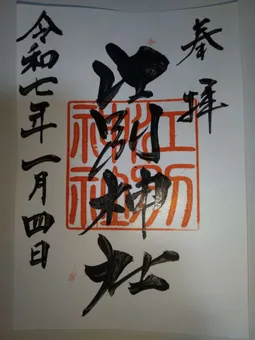 奉拝
江別神社
江別神社
令和七年一月四日